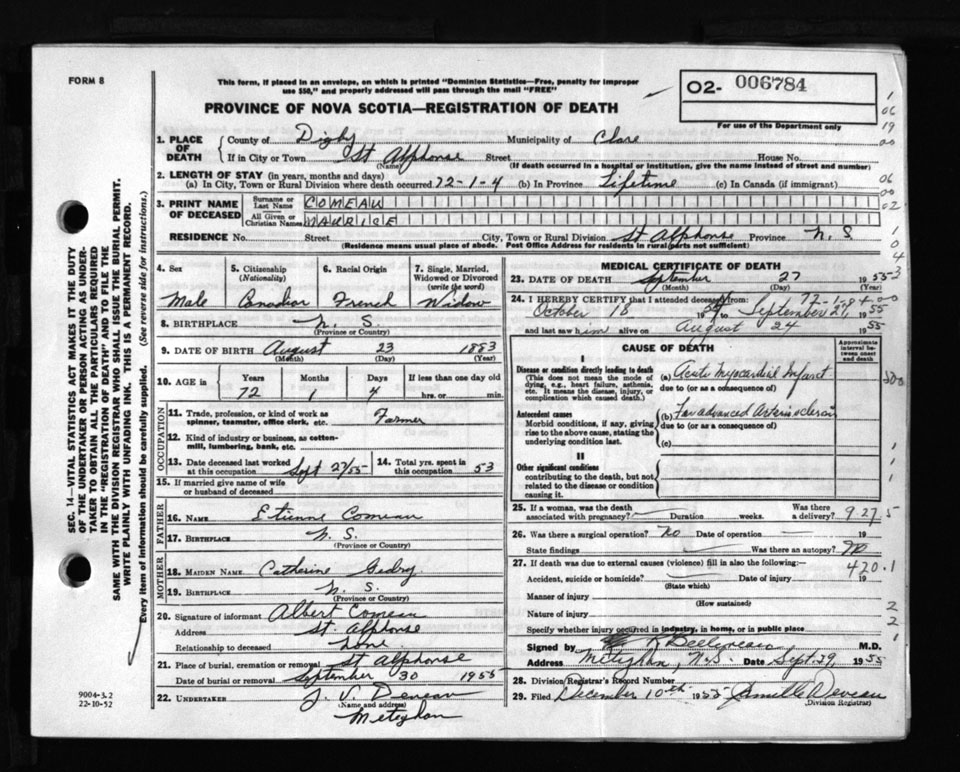 FORM 8
This form, if placed in an envelope, on which is printed "Dominion Statistics—Free, penalty for improper
use $50," and properly addressed will pass through the mail "FREE"
PROVINCE OF NOVA SCOTIA—REGISTRATION OF DEATH
O2- 006784
For use of the Department only
1. PLACE OF DEATH
County of Digby Municipality of Clare
If in City or Town St Alphonse Street House No.
(Name) (If death occurred in a hospital or institution, give the name instead of street and number)
2. LENGTH OF STAY (in years, months and days)
(a) In City, Town or Rural Division where death occurred 72-1-4 (b) In Province Lifetime (c) In Canada (if immigrant)
3. PRINT NAME OF DECEASED
Surname or Last Name COMEAU
All Given or Christian Names MAURICE
RESIDENCE No. Street City, Town or Rural Division St Alphonse Province N. S.
(Residence means usual place of abode. Post Office Address for residents in rural parts not sufficient)
4. Sex Male
5. Citizenship (Nationality) Canadian
6. Racial Origin French
7. Single, Married, Widowed or Divorced (write the word) Widow
8. BIRTHPLACE N. S.
(Province or Country)
9. DATE OF BIRTH August 23 1883
(Month) (Day) (Year)
10. AGE in Years Months Days If less than one day old
72 1 4 hrs. or min.
OCCUPATION
11. Trade, profession, or kind of work as spinner, teamster, office clerk, etc. Farmer
12. Kind of industry or business, as cotton-mill, lumbering, bank, etc.
13. Date deceased last worked at this occupation Sept 27/55
14. Total yrs. spent in this occupation 53
15. If married give name of wife or husband of deceased
FATHER
16. NAME Etienne Comeau
17. BIRTHPLACE N. S.
(Province or Country)
MOTHER
18. MAIDEN NAME Catherine
19. BIRTHPLACE N. S.
(Province or Country)
20. Signature of informant Albert Comeau
Address St. Alphonse
Relationship to deceased
21. Place of burial, cremation or removal St Alphonse
Date of burial or removal September 30 1955
22. UNDERTAKER J. V. Deveau
(Name and address)
Meteghan
MEDICAL CERTIFICATE OF DEATH
23. DATE OF DEATH September 27 1955
(Month) (Day) (Year)
24. I HEREBY CERTIFY that I attended deceased from: 72-1-4
October 18 19 to September 27, 1955
and last saw him alive on August 24 1955
CAUSE OF DEATH
Approximate interval between onset and death
I
Disease or condition directly leading to death
(This does not mean the mode of dying, e.g., heart failure, asthenia, etc. It means the disease, injury, or complication which caused death.)
(a) Acute Myocardial Infarct
due to (or as a consequence of)
Antecedent causes
Morbid conditions, if any, giving rise to the above cause, stating the underlying condition last.
(b) Far advanced Arteriosclerosis
due to (or as a consequence of)
(c)
II
Other significant conditions
contributing to the death, but not related to the disease or condition causing it.
25. If a woman, was the death associated with pregnancy? Duration weeks. Was there a delivery?
927 5
26. Was there a surgical operation? No Date of operation
State findings Was there an autopsy? No
27. If death was due to external causes (violence) fill in also the following:—
420.1
Accident, suicide or homicide? Date of injury 19
(State which)
Manner of injury
(How sustained)
Nature of injury
Specify whether injury occurred in industry, in home, or in public place
Signed by Belliveau M.D.
Address Meteghan, N.S. Date Sept. 29, 1955
28. Division Registrar's Record Number
29. Filed December 10th 1955 Camille Deveau
(Division Registrar)
SEC. 14—VITAL STATISTICS ACT MAKES IT THE DUTY
OF THE UNDERTAKER OR PERSON ACTING AS UNDER-
TAKER TO OBTAIN ALL THE PARTICULARS REQUIRED
IN THE "REGISTRATION OF DEATH" AND TO FILE THE
SAME WITH THE DIVISION REGISTRAR WHO SHALL ISSUE THE BURIAL PERMIT.
WRITE PLAINLY WITH UNFADING INK. THIS IS A PERMANENT RECORD.
Every item of Information should be carefully supplied. (See reverse side for instructions.)
9004-3.2
22-10-52